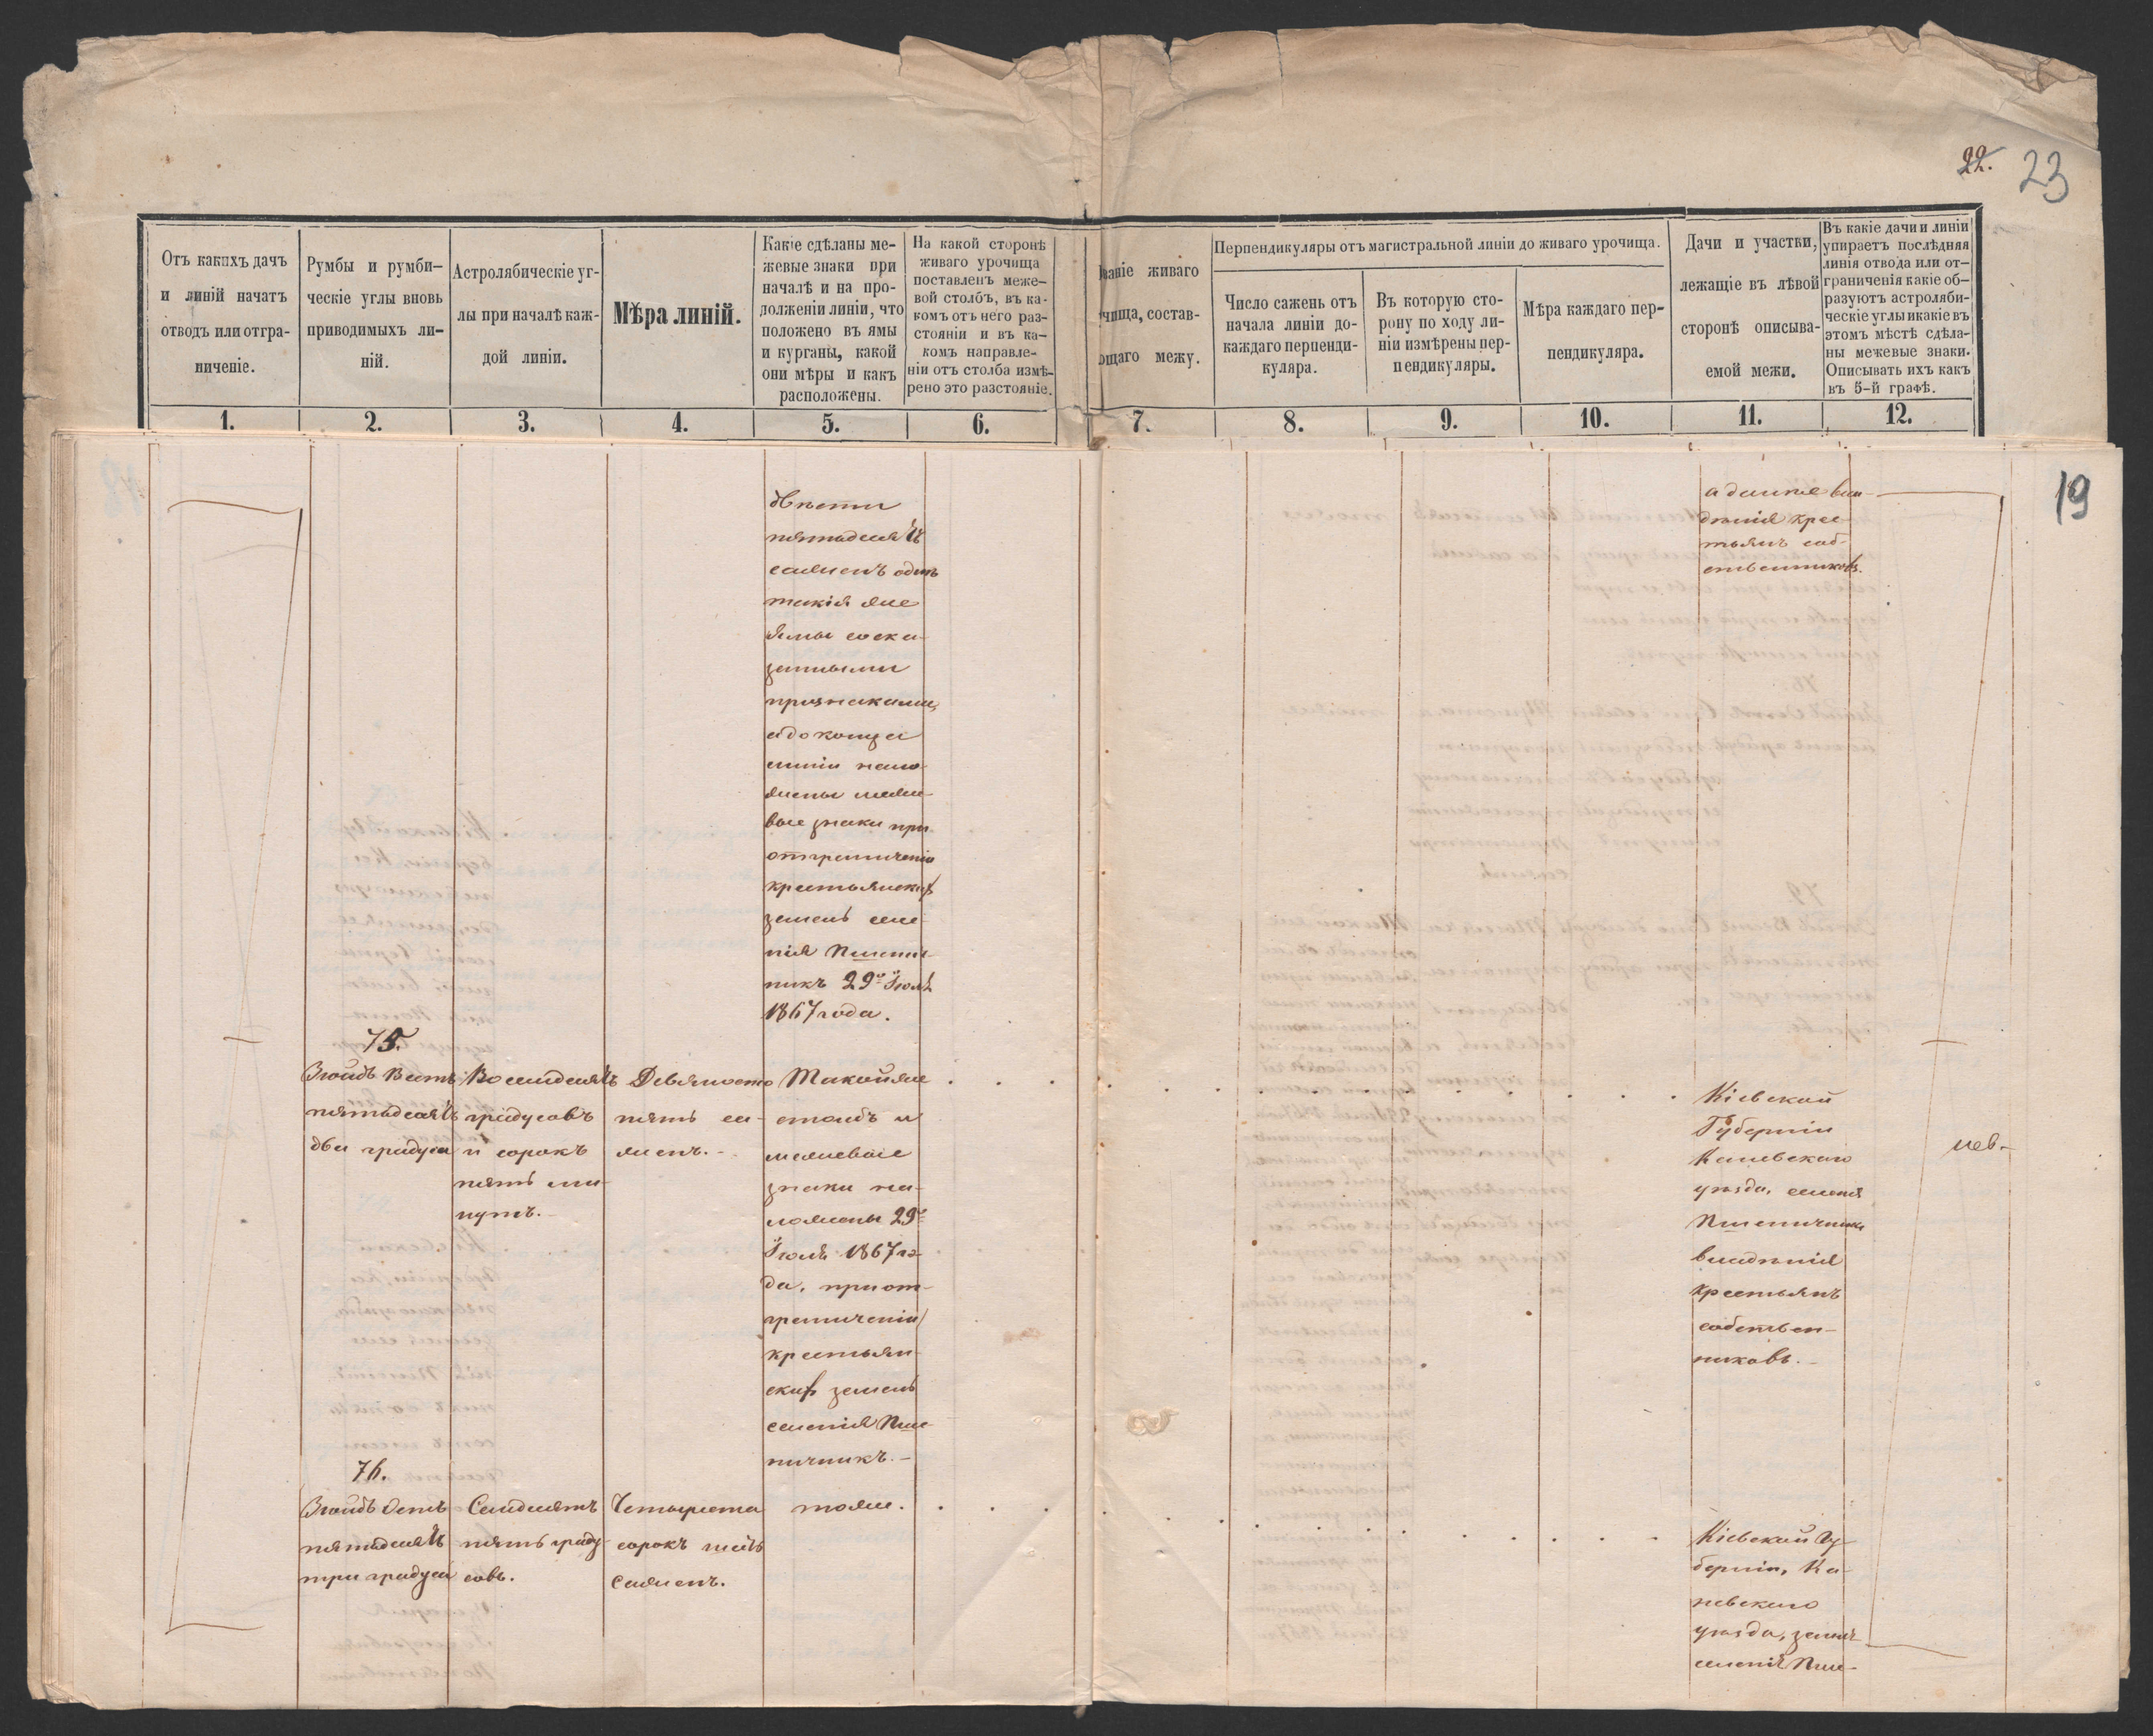 22. 23
Отъ какихъ дачъ
и линій начатъ
отводъ или отгра-
ниченіе.
Румбы и румби-
ческіе углы вновь
приводимыхъ ли-
ній.
Астролябическіе уг-
лы при началѣ каж-
дой линіи.
Мѣра линій.
Какіе сдѣланы ме-
жевые знаки при
началѣ и на про-
долженіи линіи, что
положено въ ямы
и курганы, какой
они мѣры и какъ
расположены.
На какой сторонѣ
живаго урочища
поставленъ меже-
вой столбъ, въ ка-
комъ отъ него раз-
стояніи и въ ка-
комъ направле-
ніи отъ столба измѣ-
рено это разстояніе.
ваніе живаго
чища, состав-
ющаго межу.
Перпендикуляры отъ магистральной линіи до живаго урочища.
Число сажень отъ
начала линіи до-
каждаго перпенди-
куляра.
Въ которую сто-
рону по ходу ли-
ніи измѣрены пер-
пендикуляры.
Мѣра каждаго пер-
пендикуляра.
Дачи и участки,
лежащіе въ лѣвой
сторонѣ описыва-
емой межи.
Въ какіе дачи и линіи
упираетъ послѣдняя
линія отвода или от-
граниченія какіе об-
разуютъ астроляби-
ческіе углы и какіе въ
этомъ мѣстѣ сдѣла-
ны межевые знаки.
Описывать ихъ какъ
въ 5-й графѣ.
1. 2. 3. 4. 5. 6. 7. 8. 9. 10. 11. 12.
19
двѣсти
пятьдесятъ
саженъ однѣ
такія же
ямы со ска-
занными
признаками,
а до конца
линіи поло-
жены меже-
вые знаки при
отграниченіи
крестьянскихъ
земель селе-
нія Пшенич-
никъ 29го Іюля
1867 года.
а далѣе вла-
дѣнія крес-
тьянъ соб-
ственниковъ.
75.
Зюйдъ Вестъ
пятьдесятъ
два градуса
Восемдесятъ
градусовъ
и сорокъ
пять ми-
нутъ.
Девяносто
пять са-
женъ.
Такой же
столбъ и
межевые
знаки по-
ложены 29го
Іюля 1867 го-
да, при от-
граниченіи
крестьян-
скихъ земель
селенія Пше-
ничникъ.
Кіевской
Губерніи
Каневскаго
уѣзда, селенія
Пшеничника
владѣнія
крестьянъ
собствен-
никовъ.
76.
Зюйдъ Остъ
пятьдесятъ
три градуса
Семдесятъ
пять граду-
совъ.
Четыреста
сорокъ шесть
Саженъ.
тоже.
Кіевской Гу-
берніи, Ка-
невскаго
уѣзда, земли
селенія Пше-